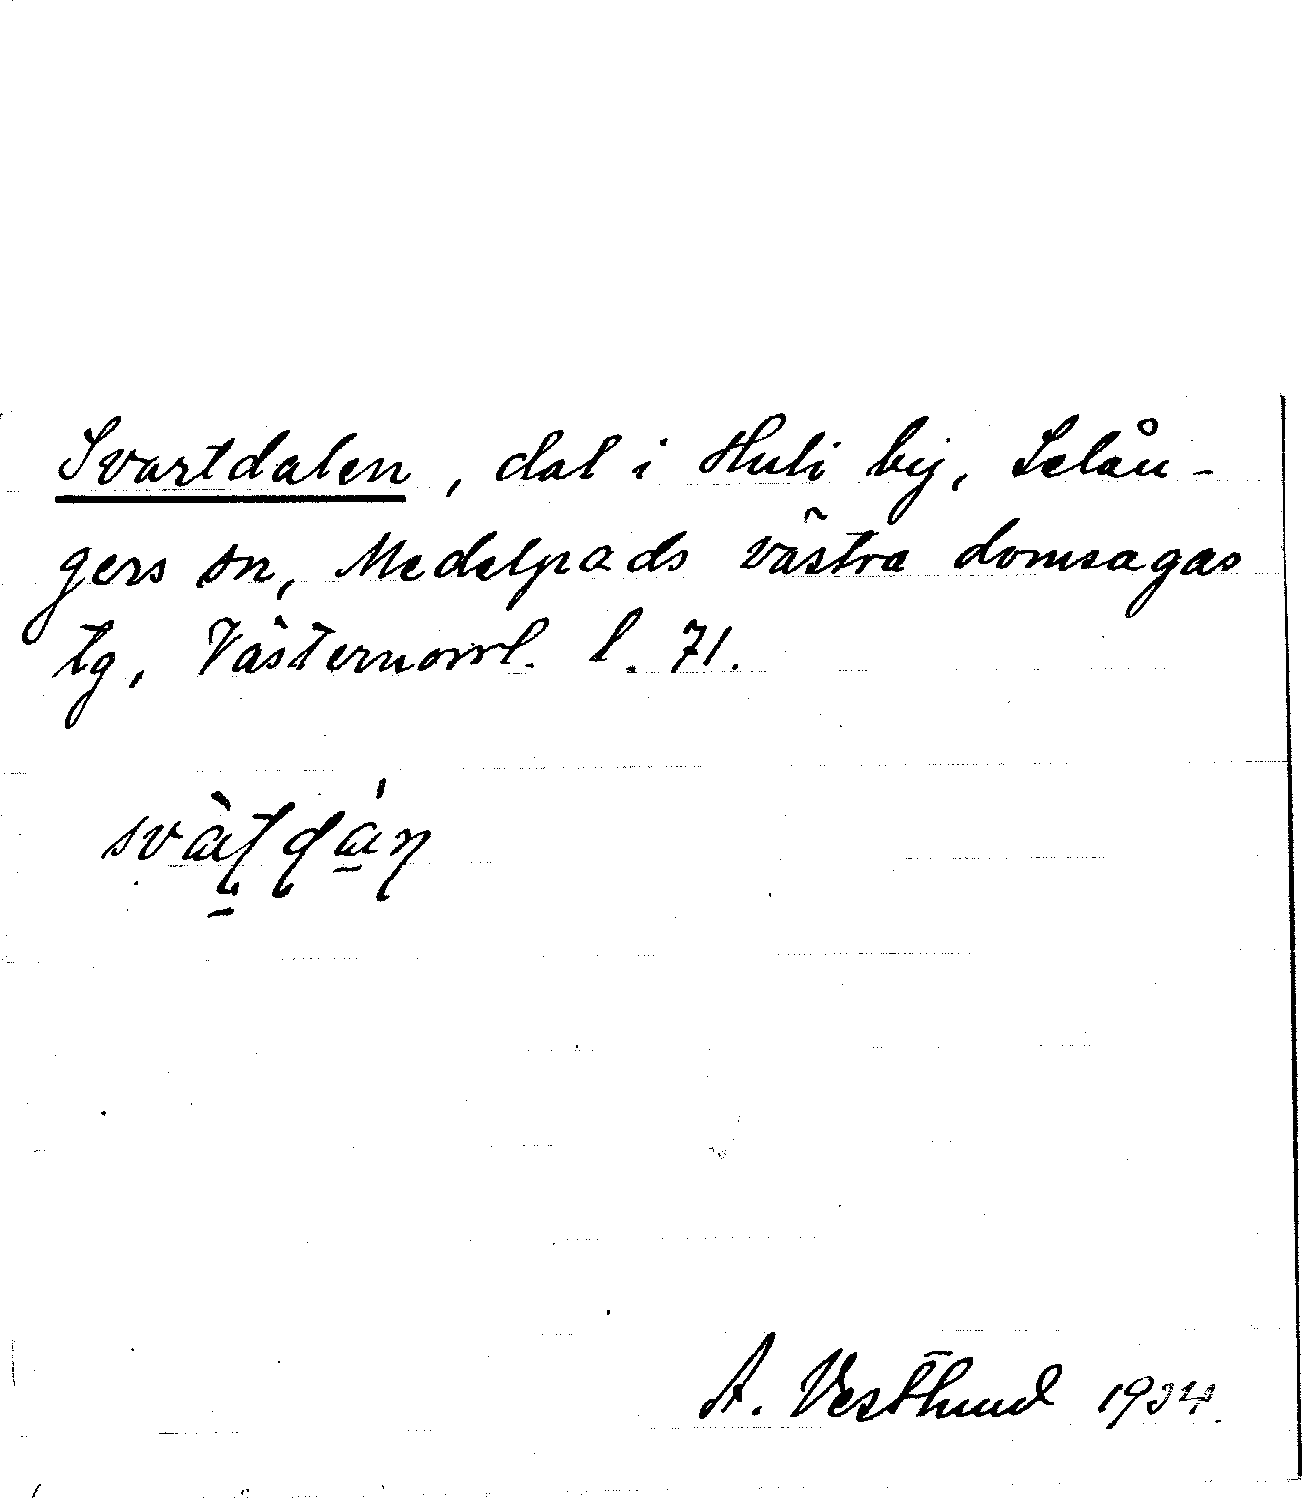 Svartdalen, dal i Huli by, Selån-
gers sn, Medelpads västra domsagas
tg, Västernorrl. l. 71.
A. Vestlund 1934.